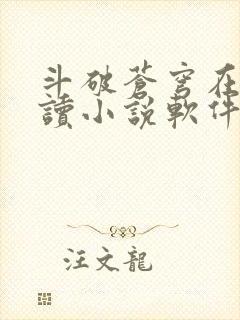 斗破蒼穹在
讀小說軟件
汪文龍